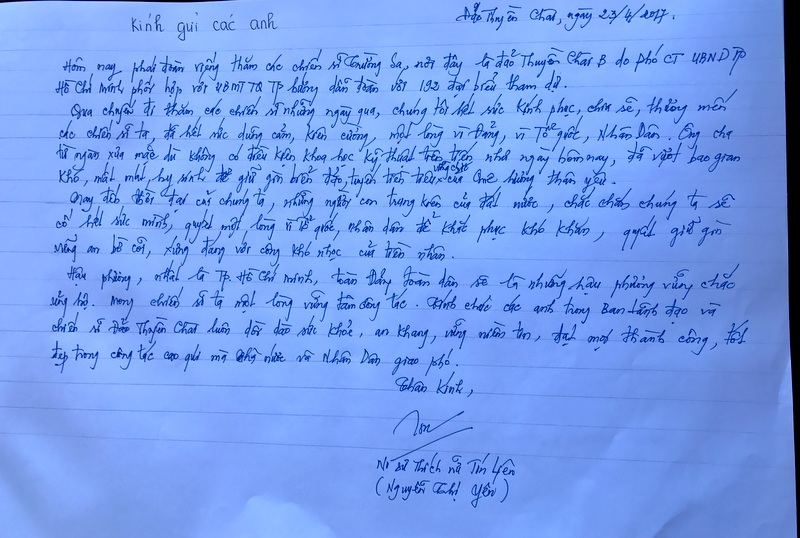 Kính gửi các anh
Đảo Thuyền Chài, ngày 23/4/2017.
Hôm nay phái đoàn viếng thăm các chiến sĩ Trường Sa, nơi đây là đảo Thuyền Chài B do Phó CT UBND TP
Hồ Chí Minh phối hợp với UBMTTQ TP hướng dẫn đoàn với 192 đại biểu tham dự.
Qua chuyến đi thăm các chiến sĩ những ngày qua, chúng tôi hết sức kính phục, chia sẻ, thương mến
các chiến sĩ ta, đã hết sức dũng cảm, kiên cường, một lòng vì Đảng, vì Tổ quốc, Nhân Dân. Ông cha
từ ngàn xưa mặc dù không có điều kiện khoa học kỹ thuật tiên tiến như ngày hôm nay, đã vượt bao gian
khổ, mất mát hy sinh để giữ gìn biển đảo, của quê hương thân yêu.
Ngày đến thời đại của chúng ta, những người con trung kiên của đất nước, chắc chắn chúng ta sẽ
cố hết sức mình, quyết một lòng vì Tổ quốc, nhân dân để khắc phục khó khăn, quyết giữ gìn
vững an bờ cõi, xứng đáng với công khó nhọc của tiền nhân.
Hậu phương, nhất là TP. Hồ Chí Minh, toàn Đảng toàn dân sẽ là những hậu phương vững chắc
ủng hộ. mong chiến sĩ ta một lòng vững tâm công tác. Kính chúc các anh trong Ban lãnh đạo và
chiến sĩ Đảo Thuyền Chài luôn dồi dào sức khỏe, an khang, vững niềm tin, đạt mọi thành công, tốt
đẹp trong công tác cao quí mà nhà nước và Nhân Dân giao phó.
Thân Kính,
Ni sư Thích nữ Tín Liên
(Nguyễn Thị Yến)